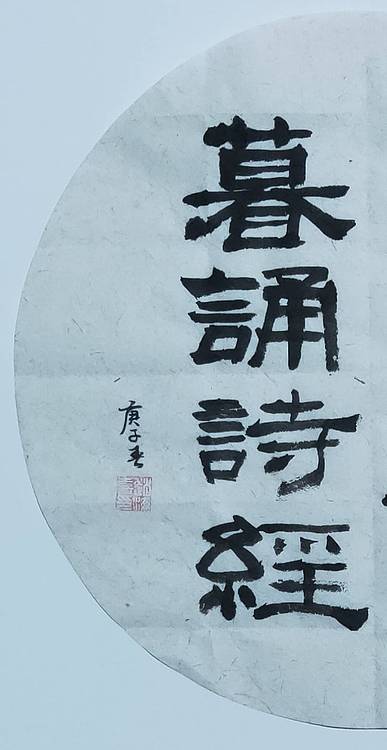 暮誦詩經
庚子春